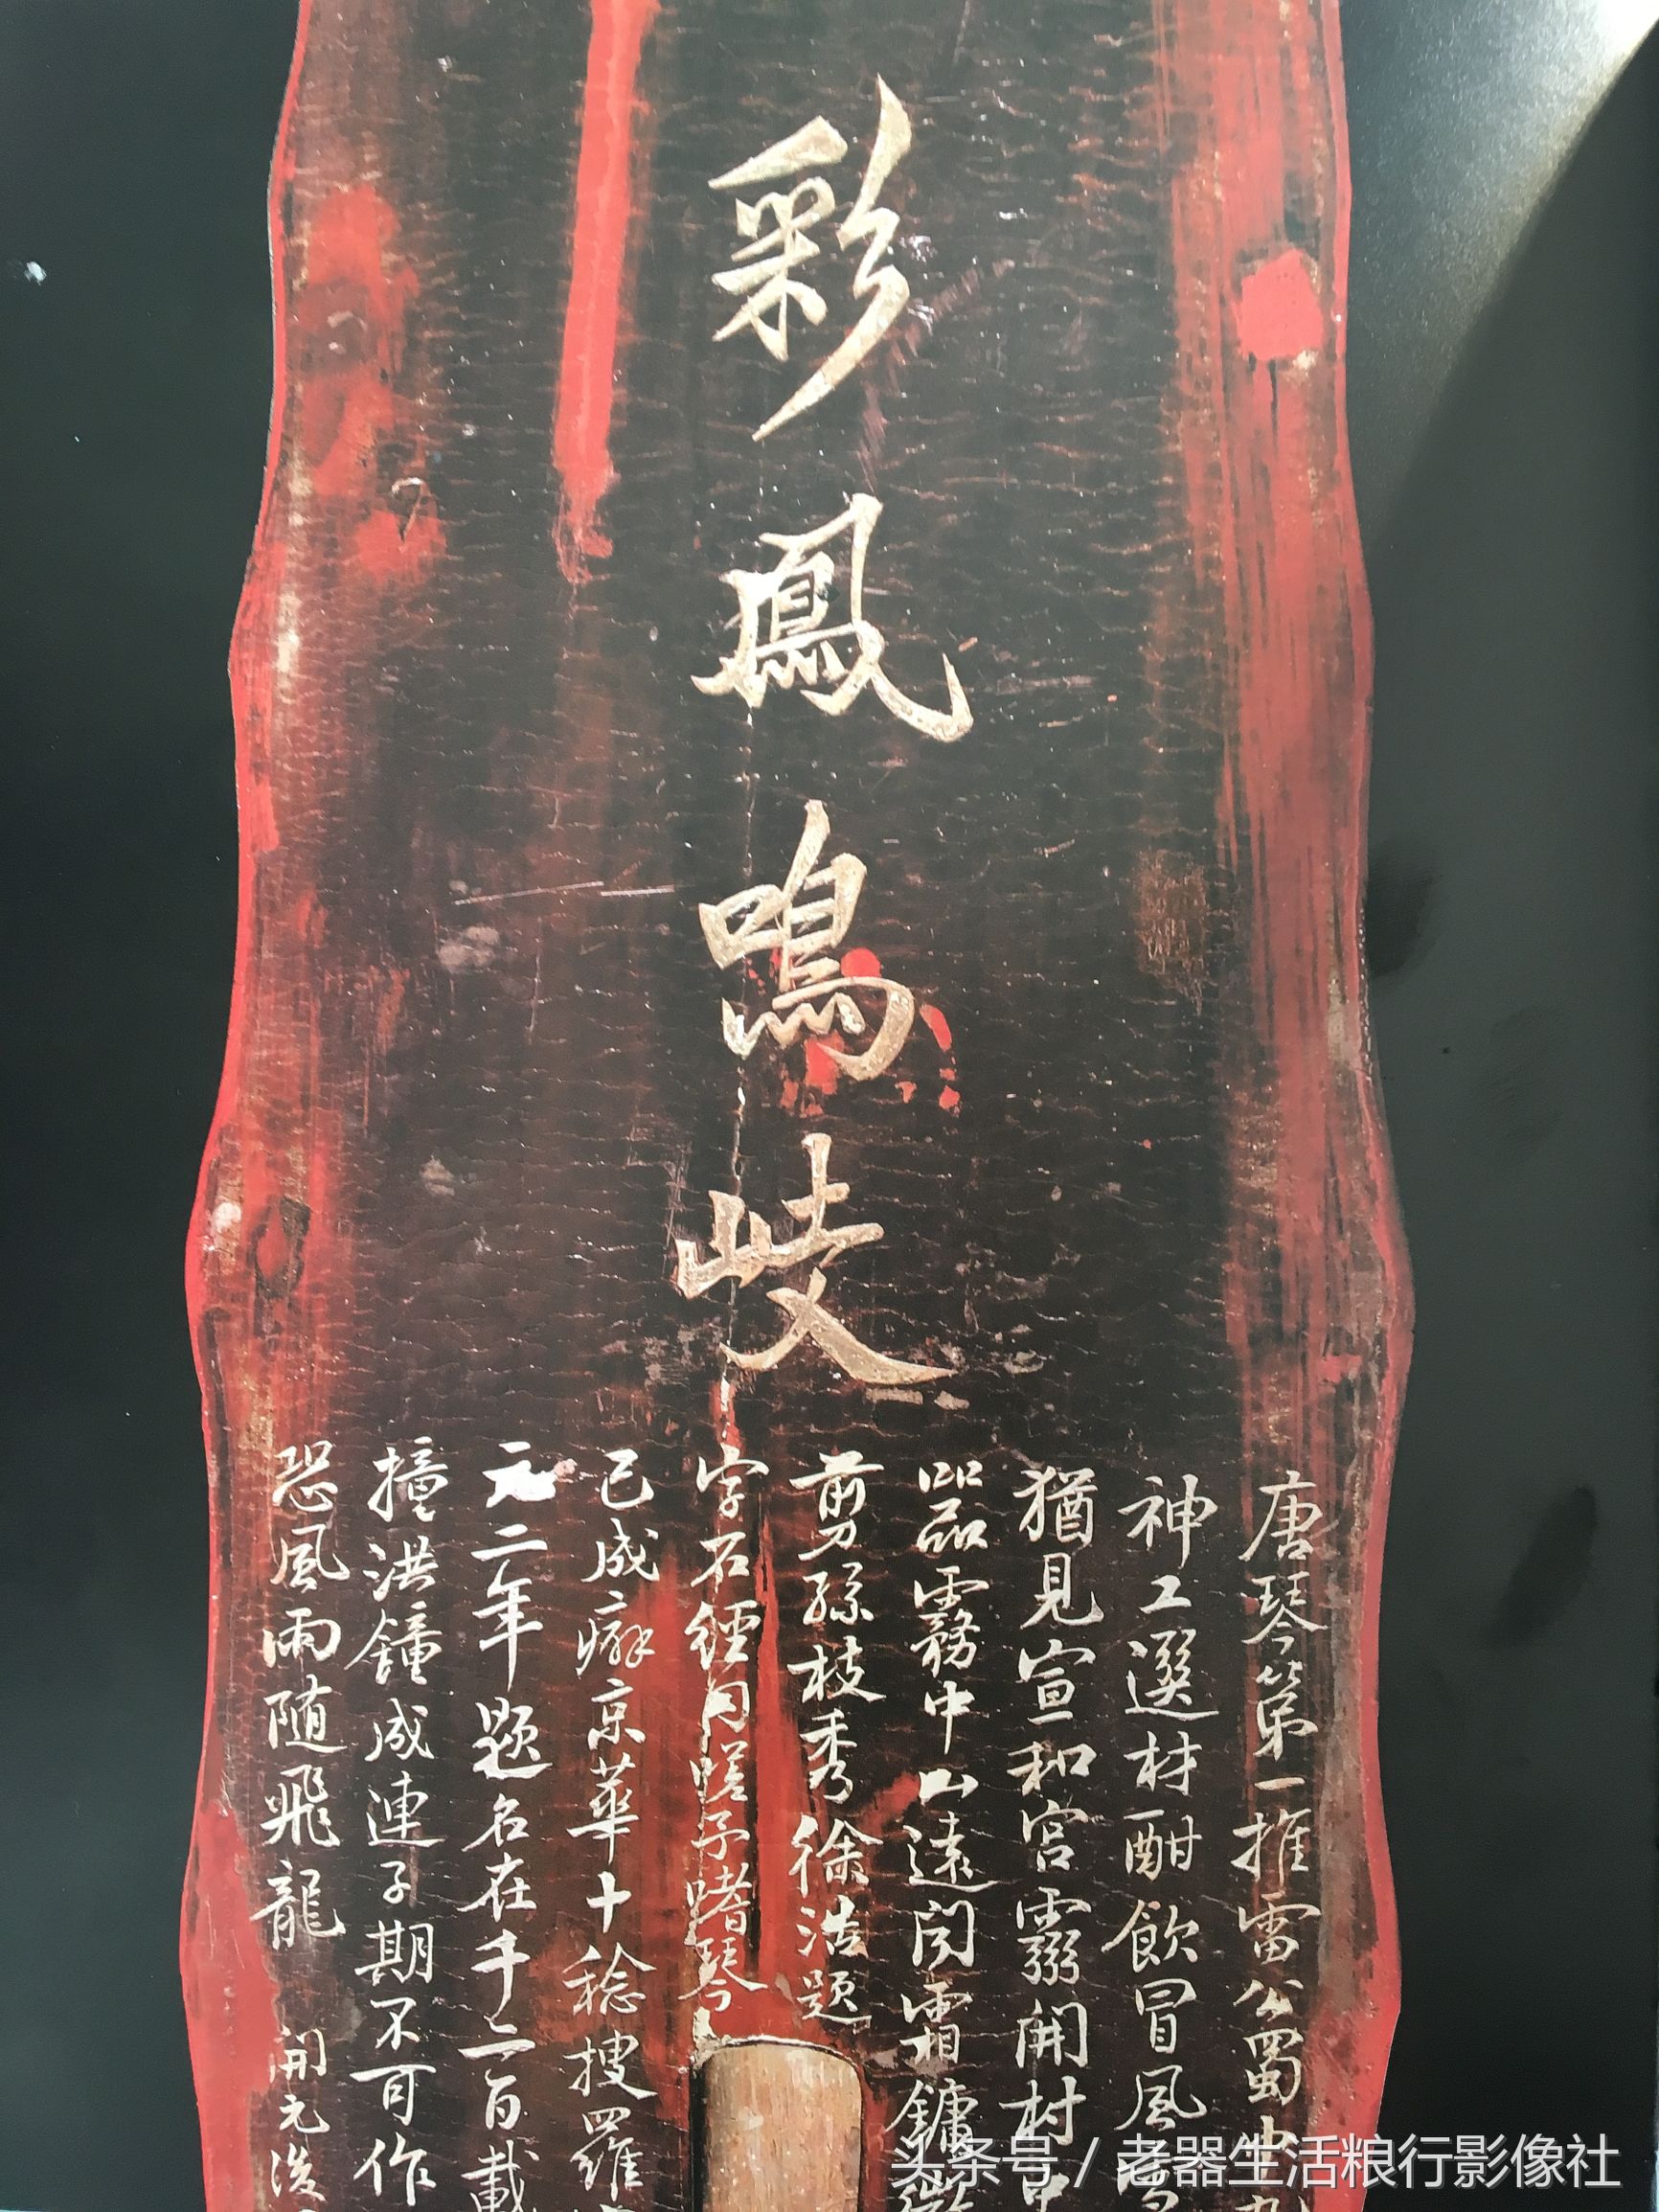 彩鳳鳴岐
唐琴第一推雷公蜀中
神工選材酣飲冒風
猶見宣和宮霧開村
品霧中山遠聞霜鏞
剪孫枝秀徐浩題
字石經同嗟予嗜琴
已成癖京華十稔搜羅
元二年題名在千二百載
撞洪鐘成連子期不可作
恐風雨随飛龍 開元後
头条号 / 老器生活粮行影像社